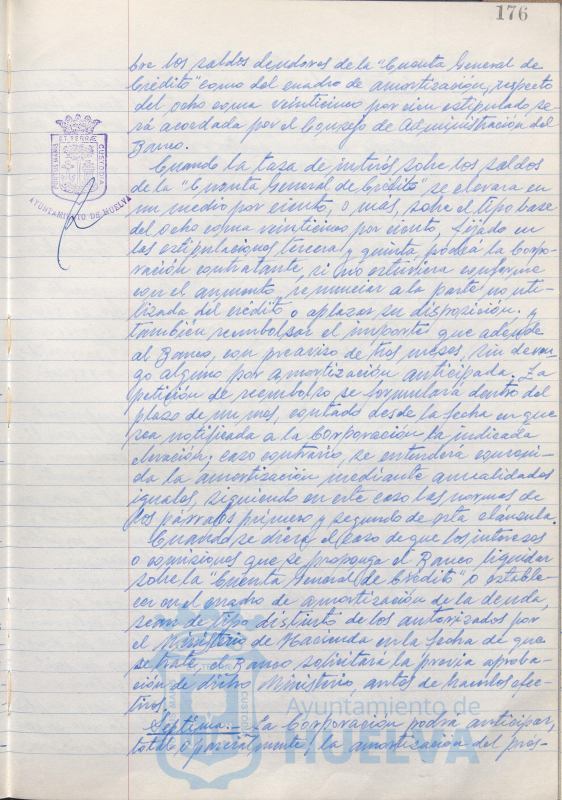 176
bre los saldos deudores de la "Cuenta General de
Crédito" como del cuadro de amortización, respecto
del ocho coma veinticinco por cien estipulado, se-
rá acordada por el Consejo de Administración del
Banco.
Cuando la tasa de interés sobre los saldos
de la "Cuenta General de Crédito" se elevara en
un medio por ciento, o más sobre el tipo base
del ocho coma veinticinco por ciento, fijado en
las estipulaciones tercera y quinta, podrá la Corpo-
ración contratante, si no estuviera conforme
con el aumento renunciar a la parte no uti-
lizada del crédito o aplazar su disposición, y
también reembolsar el importe que adeude
al Banco, con preaviso de tres meses, sin deven-
go alguno por amortización anticipada. La
petición de reembolso se formulará dentro del
plazo de un mes, contado desde la fecha en que
sea notificada a la Corporación la indicada
elevación; caso contrario, se entenderá conveni-
da la amortización mediante anualidades
iguales, siguiendo en este caso las normas de
los párrafos primero y segundo de esta cláusula.
Cuando se diera el caso de que los intereses
o comisiones que se proponga el Banco liquidar
sobre la "Cuenta General de Crédito" o estable-
cer en el cuadro de amortización de la deuda,
sean de tipo distinto de los autorizados por
el Ministerio de Hacienda en la fecha de que
se trate, el Banco solicitará la previa aproba-
ción de dicho Ministerio, antes de hacerlos efec-
tivos.
Séptima.- La Corporación podrá anticipar,
total o parcialmente, la amortización del prés-
PORTUS MARIS ET TERRAE CUSTODIA
AYUNTAMIENTO DE HUELVA
Ayuntamiento de
HUELVA